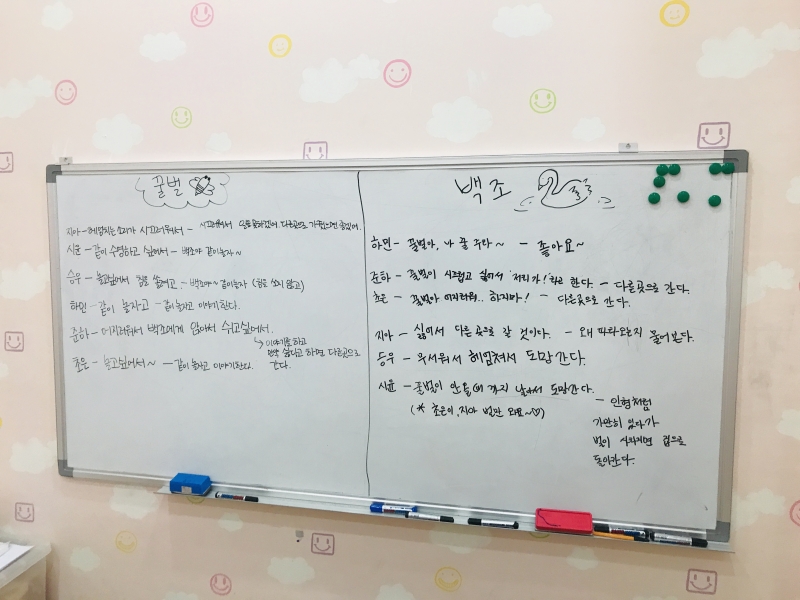 꿀벌
지아 - 헤엄치는 소리가 시끄러워서 - 시끄러워서 다른곳으로 갔으면 좋겠어.
시윤 - 같이 수영하고 싶어서 - 백조야 같이놀자~
승우 - 놀고싶어서 침을 쏠려고 - 백조야~ 같이놀자 (침을 쏘지 않고)
하민 - 같이 놀자고 - 같이놀자고 이야기한다.
준하 - 어지러워서 백조에게 앉아서 쉬고싶어서.
↳ 이야기를 하고
만약 싫다고 하면 다른곳으로
간다.
초은 - 놀고싶어서~ - 같이 놀자고 이야기한다.
백조
하민 - 꿀벌아, 나 꿀 주라~ - 좋아요~
준하 - 꿀벌이 시끄럽고 싫어서 "저리가!" 라고 한다. - 다른곳으로 간다.
초은 - 꿀벌아 어지러워.. 하지마! - 다른곳으로 간다.
지아 - 싫어서 다른 곳으로 갈 것이다. - 왜 따라오는지 물어본다.
승우 - 무서워서 헤엄쳐서 도망간다.
시윤 - 꿀벌이 안올때 까지 날아서 도망간다.
(* 초은이, 지아 벌만 와요~♡)
- 인형처럼
가만히 있다가
벌이 사라지면 집으로
돌아간다.